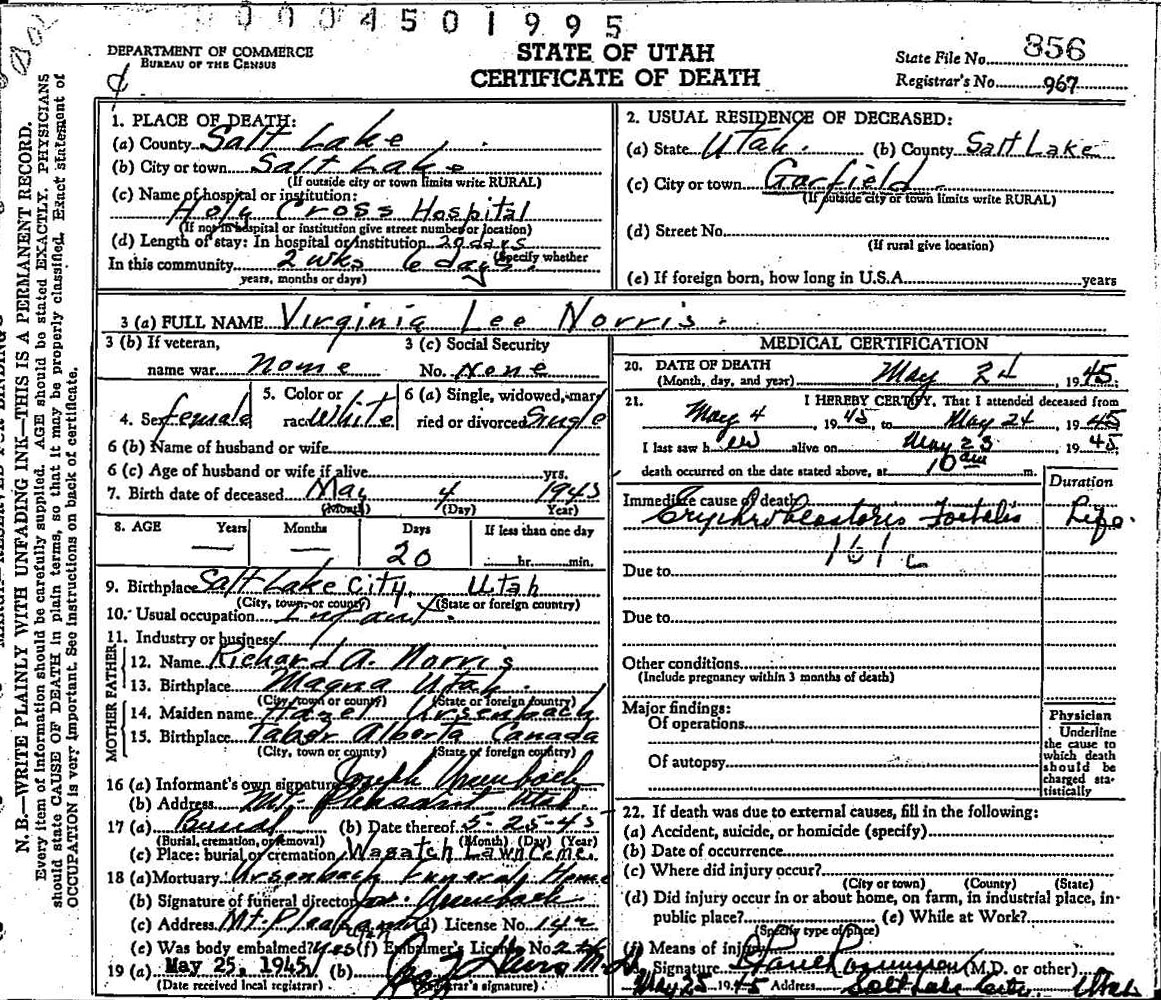 0004501995
DEPARTMENT OF COMMERCE
BUREAU OF THE CENSUS
STATE OF UTAH
CERTIFICATE OF DEATH
State File No. 856
Registrar's No. 967
N. B.—WRITE PLAINLY WITH UNFADING INK—THIS IS A PERMANENT RECORD.
Every item of information should be carefully supplied. AGE should be stated EXACTLY. PHYSICIANS
should state CAUSE OF DEATH in plain terms, so that it may be properly classified. Exact statement of
OCCUPATION is very important. See instructions on back of certificate.
1. PLACE OF DEATH:
(a) County Salt Lake
(b) City or town Salt Lake
(If outside city or town limits write RURAL)
(c) Name of hospital or institution:
Holy Cross Hospital
(If not in hospital or institution give street number or location)
(d) Length of stay: In hospital or institution 20 days
(Specify whether
In this community 2 wks 6 days
years, months or days)
2. USUAL RESIDENCE OF DECEASED:
(a) State Utah (b) County Salt Lake
(c) City or town Garfield
(If outside city or town limits write RURAL)
(d) Street No.
(If rural give location)
(e) If foreign born, how long in U.S.A. years
3 (a) FULL NAME Virginia Lee Norris
3 (b) If veteran,
name war none
3 (c) Social Security
No. None
4. Sex female
5. Color or
race White
6 (a) Single, widowed, mar-
ried or divorced Single
6 (b) Name of husband or wife
6 (c) Age of husband or wife if alive yrs.
7. Birth date of deceased May 4 1945
(Month) (Day) (Year)
8. AGE Years Months Days If less than one day
— — 20 hr. min.
9. Birthplace Salt Lake City, Utah
(City, town, or county) (State or foreign country)
10. Usual occupation Infant
11. Industry or business
FATHER
12. Name Richard A. Norris
13. Birthplace Magna Utah
(City, town or county) (State or foreign country)
MOTHER
14. Maiden name Hazel Ursenbach
15. Birthplace Taber Alberta Canada
(City, town or county) (State or foreign country)
16 (a) Informant's own signature Joseph Ursenbach
(b) Address Mt. Pleasant Utah
17 (a) Burial (b) Date thereof 5-25-45
(Burial, cremation, or removal) (Month) (Day) (Year)
(c) Place: burial or cremation Wasatch Lawn Ceme.
18 (a) Mortuary Ursenbach Funeral Home
(b) Signature of funeral director Jos. Ursenbach
(c) Address Mt. Pleasant Utah (d) License No. 142
(e) Was body embalmed? yes (f) Embalmer's License No.
19 (a) May 25, 1945 (b)
(Date received local registrar) (Registrar's signature)
MEDICAL CERTIFICATION
20. DATE OF DEATH
(Month, day, and year) May 24, 1945
21. I HEREBY CERTIFY, That I attended deceased from
May 4, 1945, to May 24, 1945
I last saw her alive on May 23 1945
death occurred on the date stated above, at 10 am m.
Duration
Immediate cause of death
Erythroblastosis Foetalis Life.
161c
Due to
Due to
Other conditions
(Include pregnancy within 3 months of death)
Major findings:
Of operations
Of autopsy
Physician
Underline
the cause to
which death
should be
charged sta-
tistically
22. If death was due to external causes, fill in the following:
(a) Accident, suicide, or homicide (specify)
(b) Date of occurrence
(c) Where did injury occur?
(City or town) (County) (State)
(d) Did injury occur in or about home, on farm, in industrial place, in-
public place? (e) While at Work?
(Specify type of place)
(f) Means of injury
Signature (M.D. or other)
May 25 1945 Address Salt Lake City, Utah